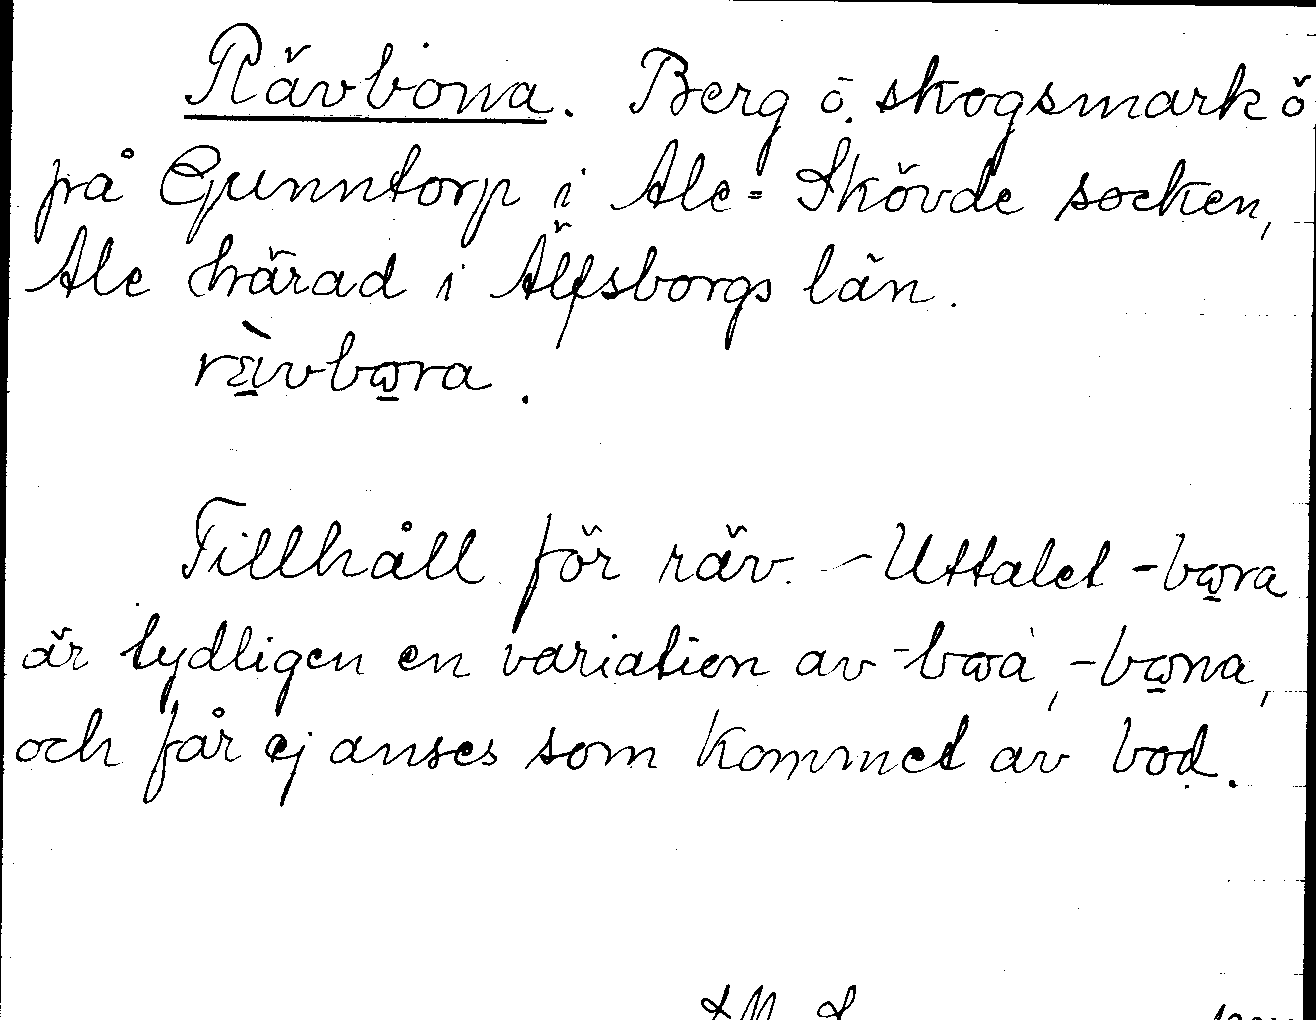 Rävbona. Berg o. skogsmark ö
på Gunntorp i Ale-Skövde socken,
Ale härad i Älfsborgs län.
rä̀vbɷra.
Tillhåll för räv. - Uttalet -bɷra
är tydligen en variation av -bɷà, -bɷna,
och får ej anses som kommet av bod.